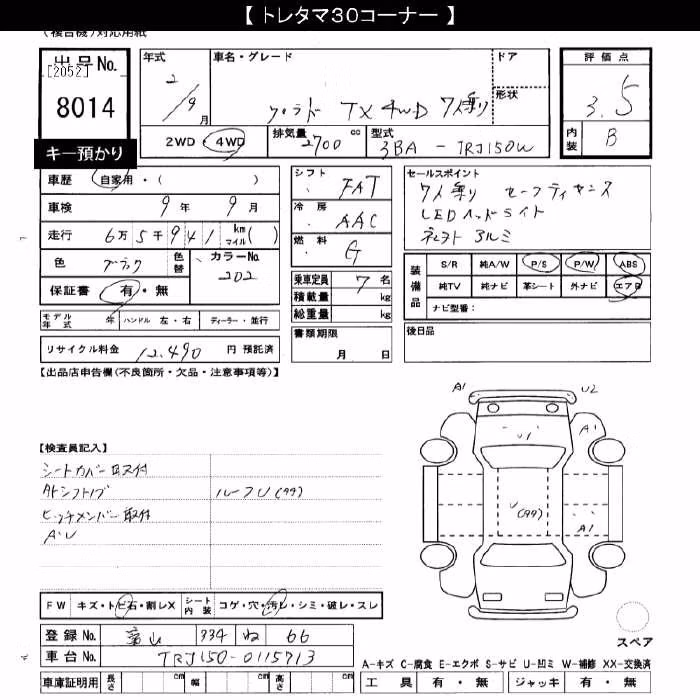 【トレタマ30コーナー】
(複合機)対応用紙
出品No. [2052] 8014
キー預かり
年式 2/9月
車名・グレード プラド TX 4WD 7人乗り
ドア
形状
評価点 3.5
内装 B
2WD・4WD
排気量 2700 cc
型式 3BA - TRJ150W
車歴 自家用・( )
車検 9年 9月
走行 6万5千941 km マイル ( )
色 ブラック 色替 カラーNo. 202
保証書 有・無
シフト FAT
冷房 AAC
燃料 G
乗車定員 7名
積載量 kg
総重量 kg
書類期限 月 日
セールスポイント
7人乗り セーフティセンス
LEDヘッドライト
アルミ
装備品 S/R 純A/W P/S P/W ABS
純TV 純ナビ 革シート 外ナビ エアB
ナビ型番:
後日品
モデル年式 年 ハンドル 左・右 ディーラー・並行
リサイクル料金 12,490 円 預託済
【出品店申告欄(不良箇所・欠品・注意事項等)】
【検査員記入】
シートカバー取付
ルーフU(99)
ヒッチメンバー取付
A・U
A1 U2
A1
U1
U(99)
A1
FW キズ・トビ石・割レX シート内装 コゲ・穴・汚レ・シミ・破レ・スレ
登録No. 富山 334 ね 66
車台No. TRJ150-0115713
車庫証明用 長さ cm 幅 cm 高さ cm
スペア
A-キズ C-腐食 E-エクボ S-サビ U-凹ミ W-補修 XX-交換済
工具 有・無 ジャッキ 有・無